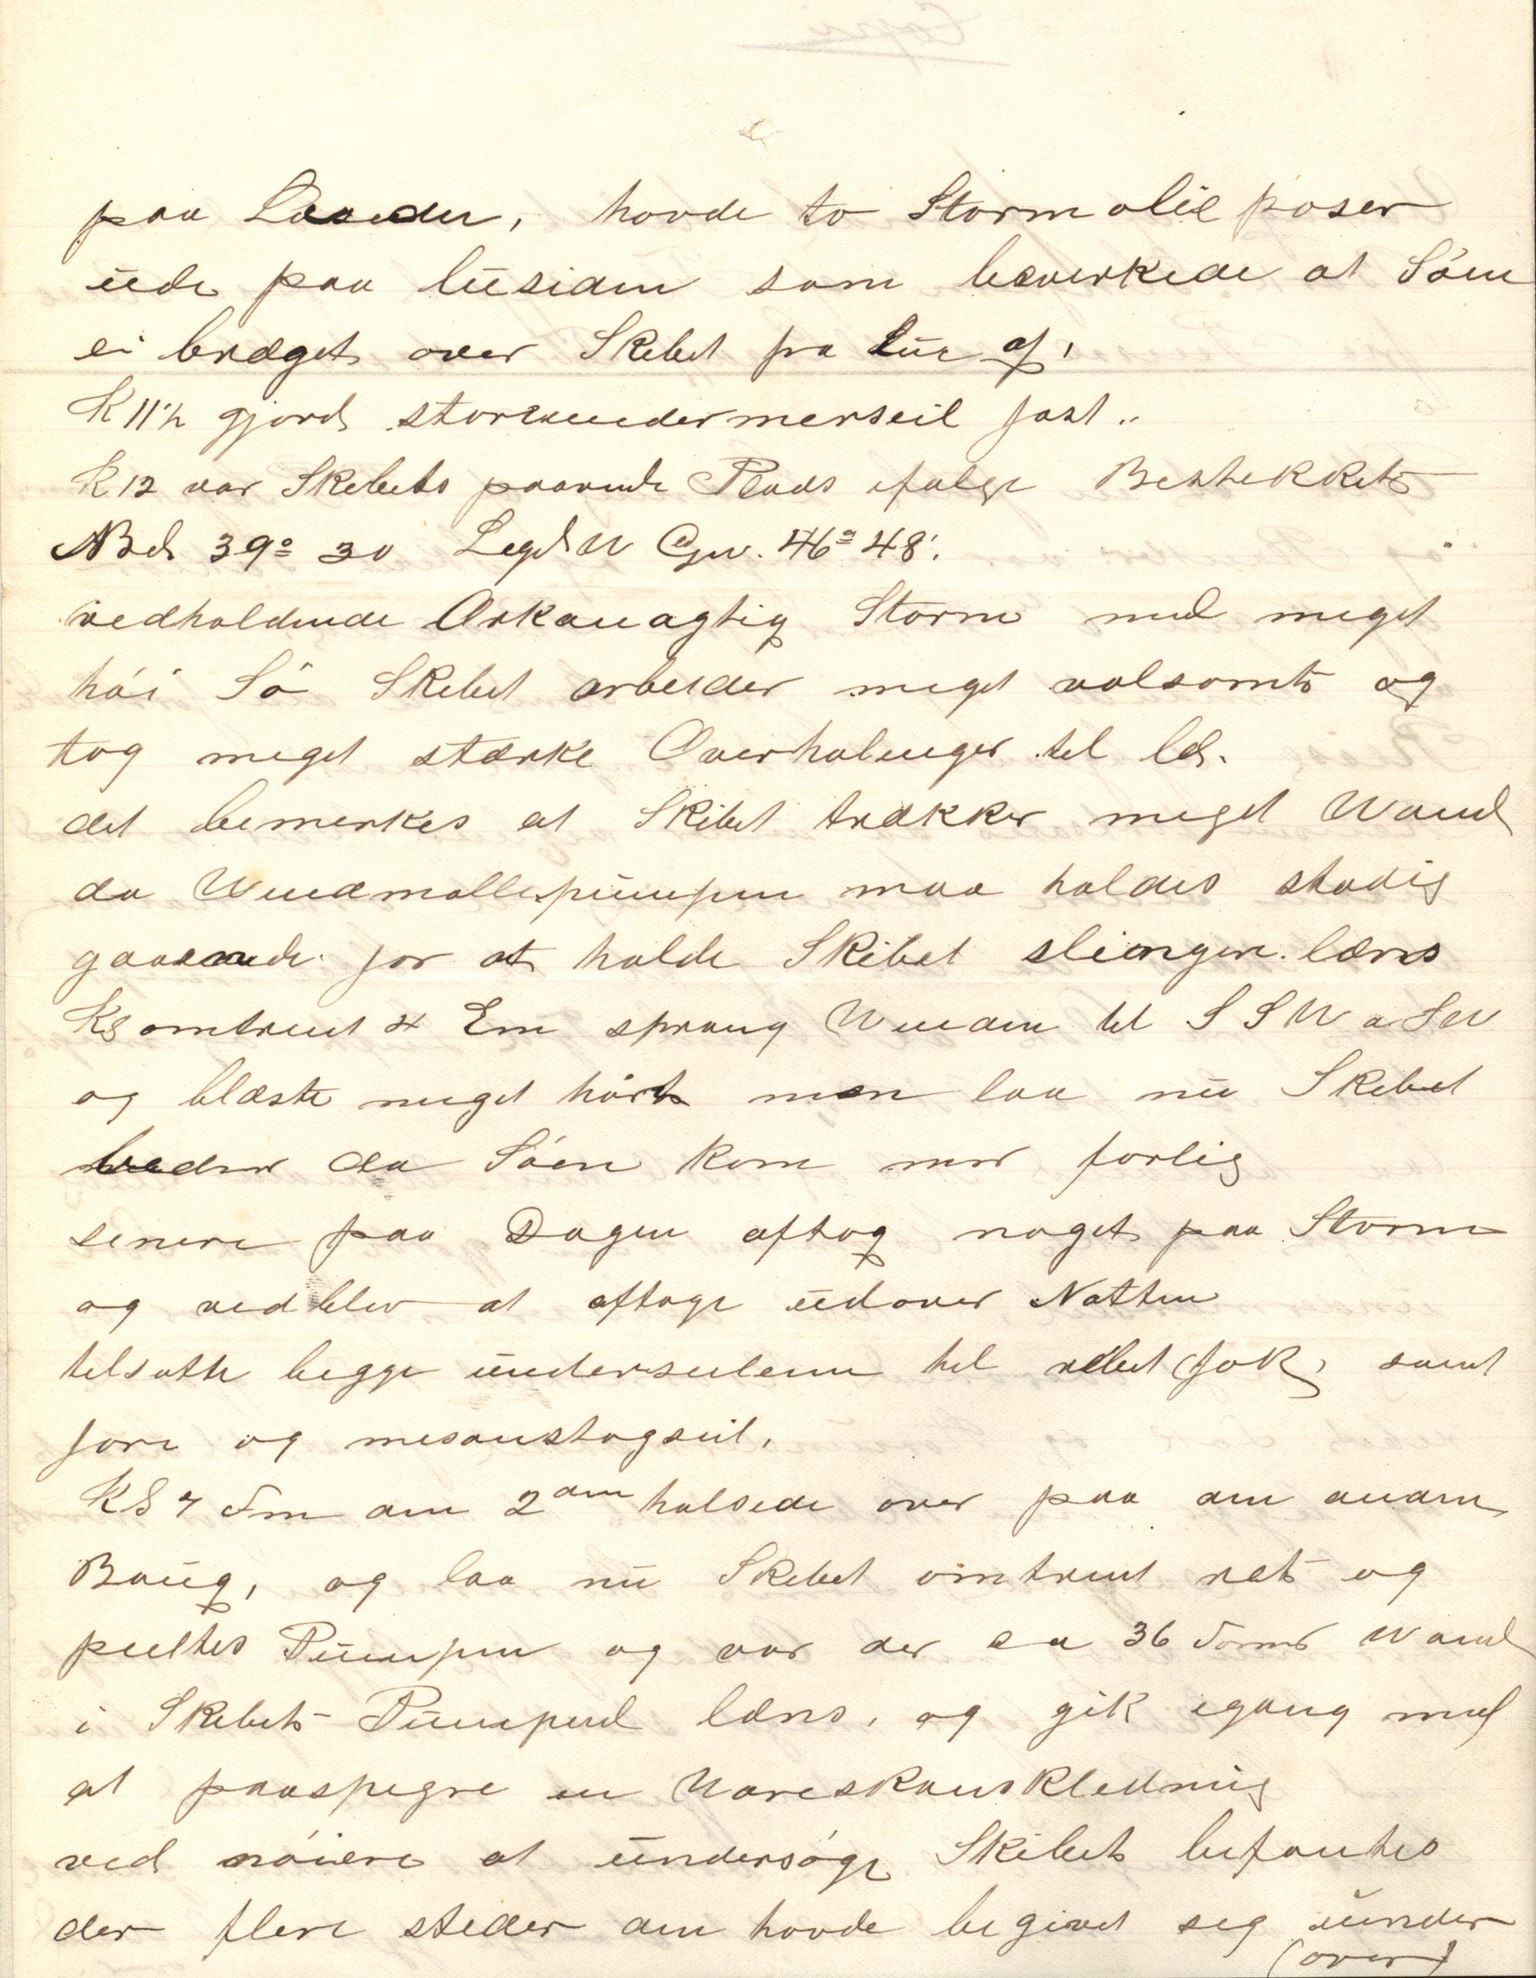 paa Lænden, havde to Stormolie poser
ude paa luisiden som bevirkede at Söen
ei bræget over Skibet fra Lue af,
K 11½ gjord storeundermerseil fast..
K 12 var Skebets paavende Plads ifølge Bestekket
NBd 39° 30 Legd W Gw. 46° 48'.
vedholdende Orkanagtig Storm med meget
höi Sö Skibet arbeider meget volsomt og
tog meget stærke Overhalinger til læ.
det bemerkes at Skibet trækker meget Wand
da Windmollepumpen maa holdes stadig
gaaende for at holde Skibet slingere læns
Kl omtrent 4 Em sprang Winden til S S W a S W
og blæste meget hart men laa nu Skebet
bedre da Söen kom mer forlig
senere paa Dagen aftog noget paa Storm
og vedblev at aftage udover Natten
tilsatte begge underseilene til rebet Fok, samt
fore og mesanstagseil.
Kl 7 Fm den 2den halsede over paa den anden
Boug, og laa nu Skebet omtrent ret og
peiltes Pumpen og var der ca 36 Tomr Wand
i Skebet Pumped læns, og gik igang med
at paaspigre en Wareskansklædning
ved nöiere at undersöge Skibet befantes
der flere steder den havde begivet seg under
(over)